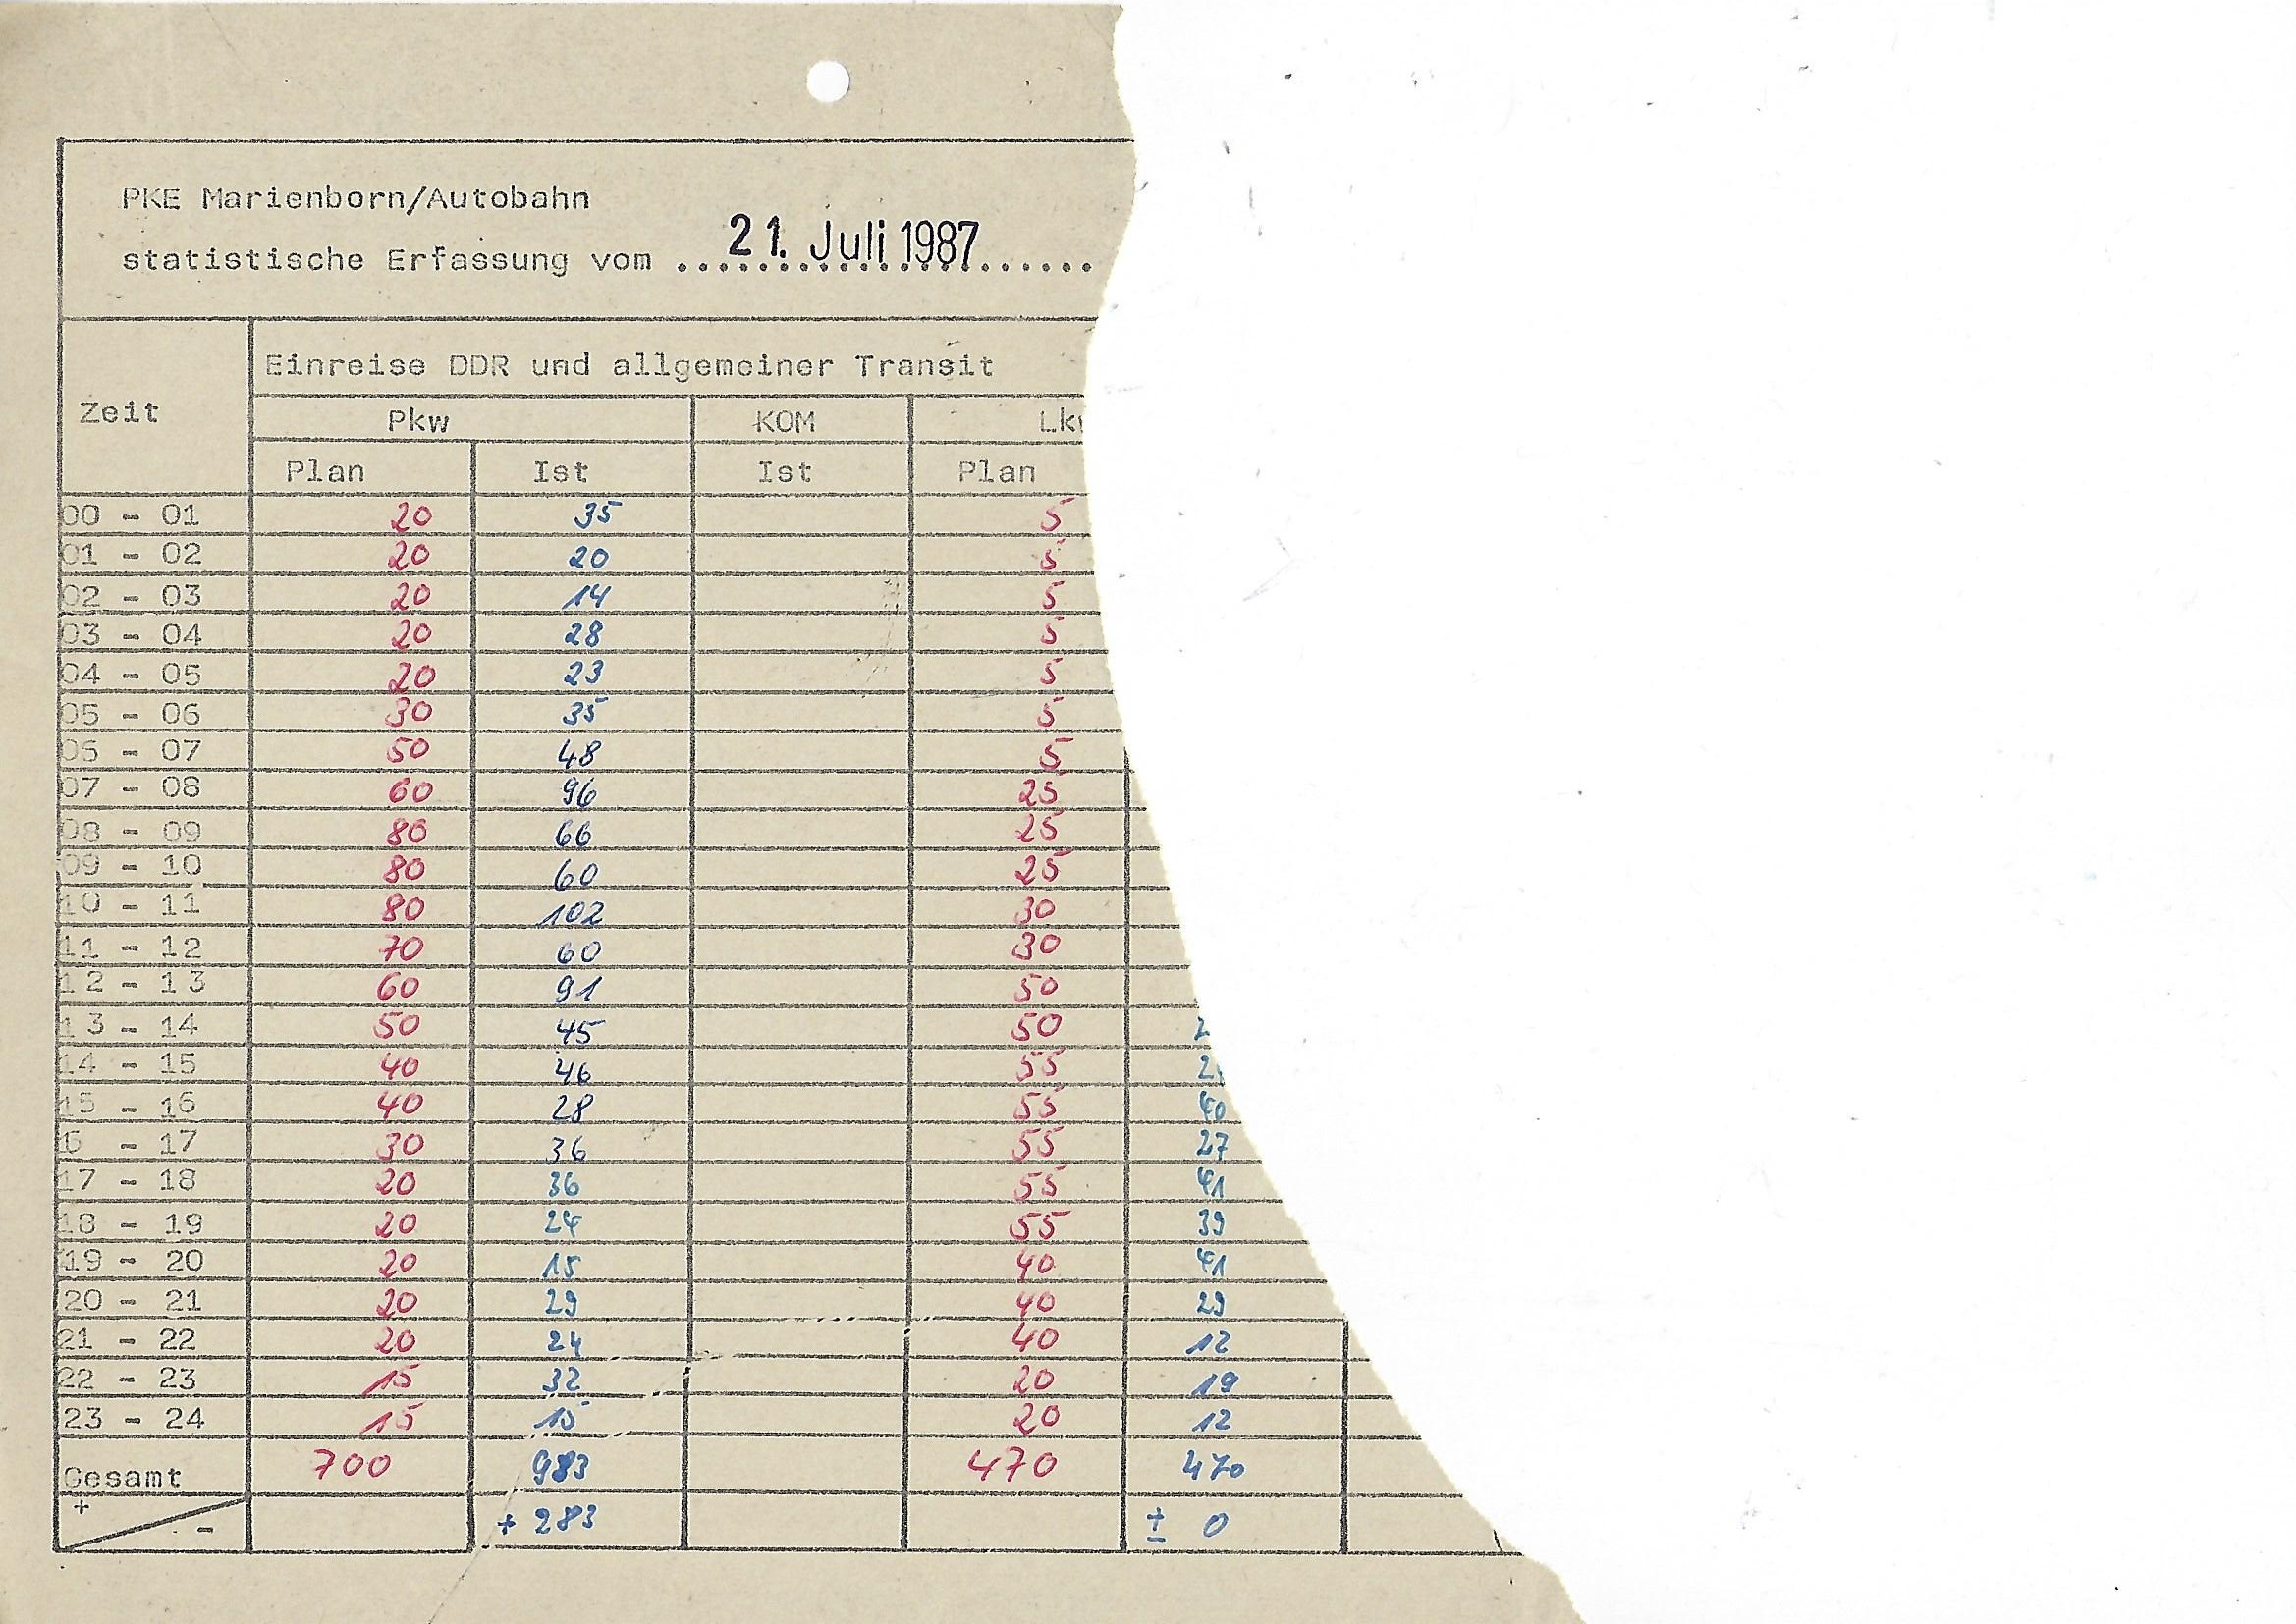 PKE Marienborn/Autobahn
statistische Erfassung vom 21. Juli 1987
Einreise DDR und allgemeiner Transit
Zeit
Pkw KOM
Plan Ist Ist Plan
00 - 01 20 35 5
01 - 02 20 20 5
02 - 03 20 14 5
03 - 04 20 28 5
04 - 05 20 23 5
05 - 06 30 35 5
06 - 07 50 48 5
07 - 08 60 96 25
08 - 09 80 66 25
09 - 10 80 60 25
10 - 11 80 102 30
11 - 12 70 60 30
12 - 13 60 91 50
13 - 14 50 45 50
14 - 15 40 46 55
15 - 16 40 28 55 40
6 - 17 30 36 55 27
17 - 18 20 36 55 41
18 - 19 20 24 55 39
19 - 20 20 15 40 41
20 - 21 20 29 40 29
21 - 22 20 24 40 12
22 - 23 15 32 20 19
23 - 24 15 15 20 12
Gesamt 700 983 470 470
+ - + 283 ± 0